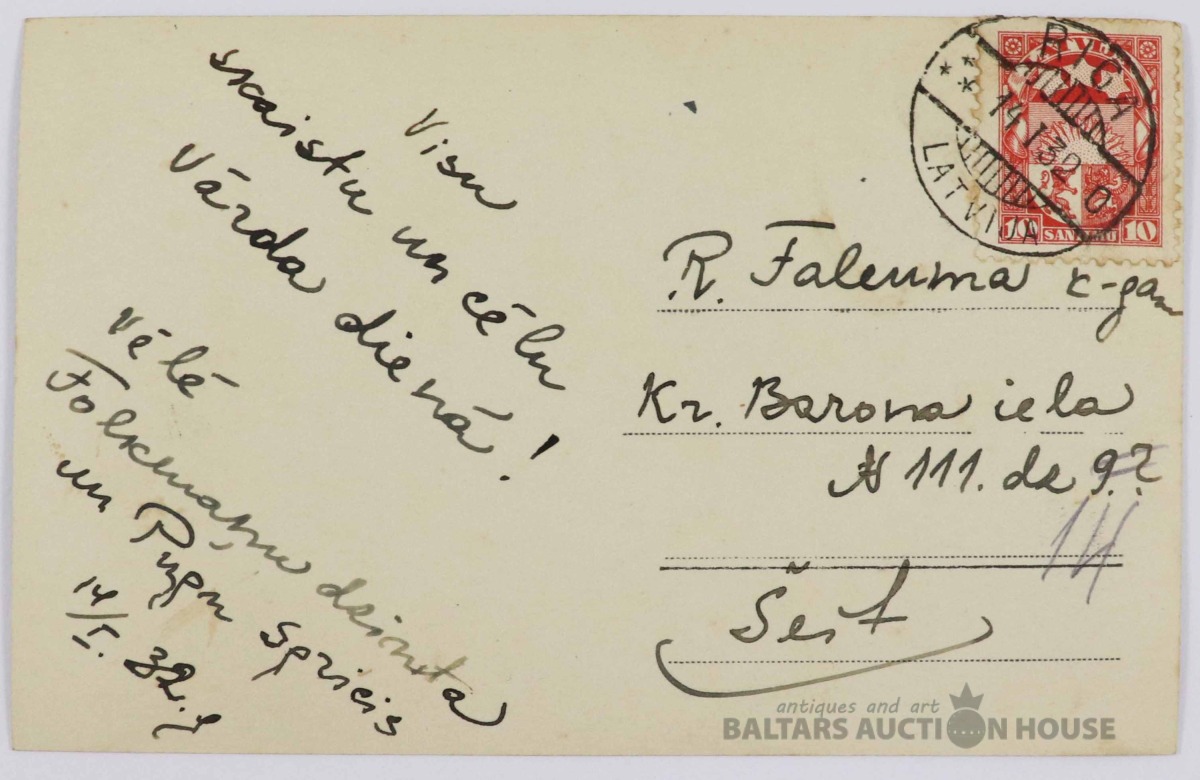 Visu
skaistu un cēlu
Vārda dienā!
Vēlē
Folkmaņu dzimta
un Pugu Spricis
14/I. 32. g
RIGA
14 I 32 0
LATVIJA
10 SANTIMU 10
R. Faleuma k-gam
Kr. Barona iela
N 111. dz 9?
14
Šeit
antiques and art
BALTARS AUCTION HOUSE